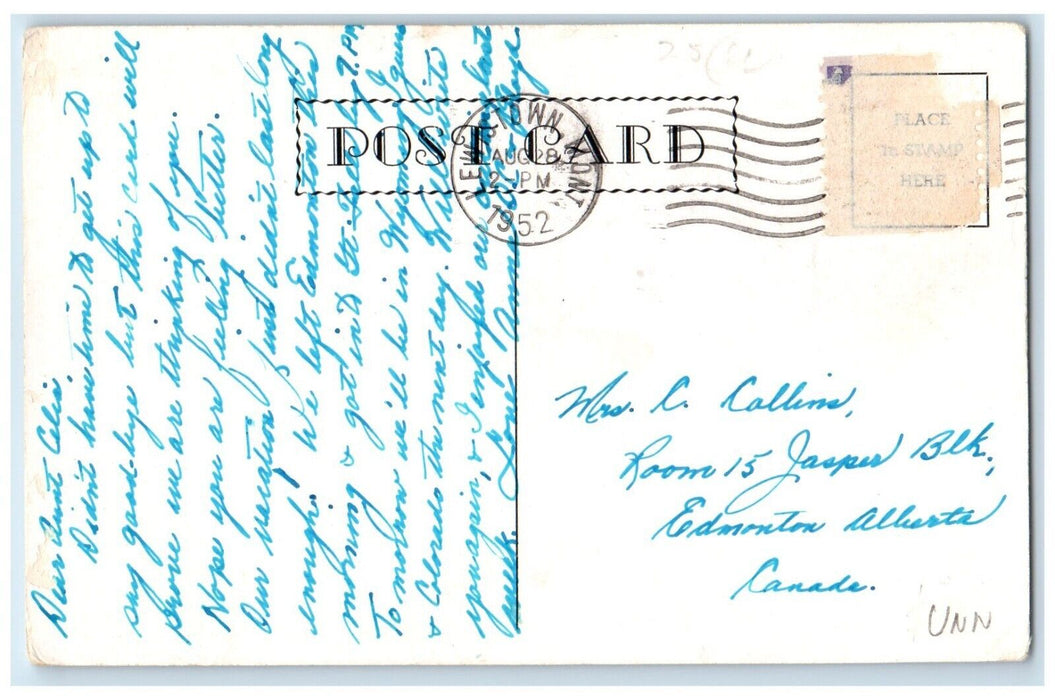 Dear Aunt Celia
Didn't have time to get up to
say good-bye but this card will
prove we are thinking of you.
Hope you are feeling better.
Our vacation just didn't last long
enough. We left Edmonton this
morning & got into the 7. PM
To-morrow we'll be in Wyoming I guess
& Colorado the next day. Will write
you again, & I enjoyed our last
week. Love
POST CARD
LEWISTOWN MONT
AUG 28
2-PM
1952
PLACE
STAMP
HERE
Mrs. C. Collins,
Room 15 Jasper Blk.,
Edmonton Alberta
Canada.
UNN